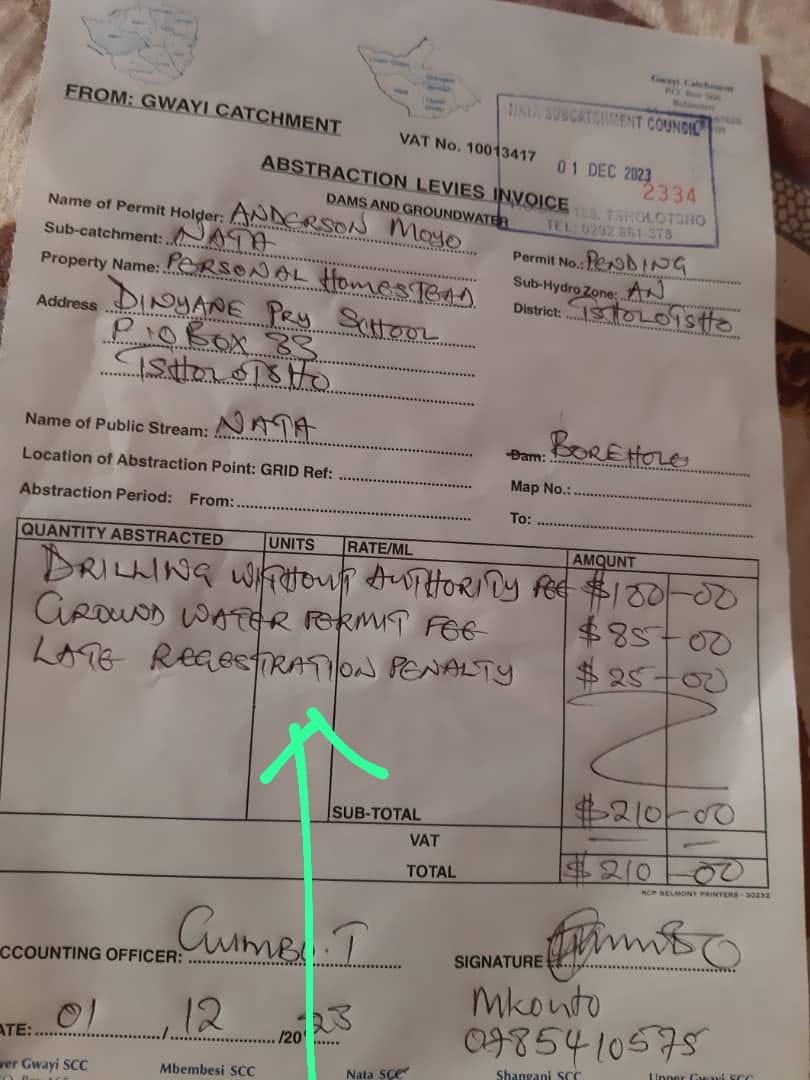 Gwayi Catchment
P.O. Box
Bulawayo
FROM: GWAYI CATCHMENT
VAT No. 10013417
NATA SUBCATCHMENT COUNCIL
01 DEC 2023
2334
TSHOLOTSHO
TEL: 0292 861-378
ABSTRACTION LEVIES INVOICE
DAMS AND GROUNDWATER
Name of Permit Holder: ANDERSON MOYO
Sub-catchment: NATA
Permit No.: PENDING
Property Name: PERSONAL HOMESTEAD
Sub-Hydro Zone: AN
Address DINYANE PRY SCHOOL
District: TSHOLOTSHO
P.O BOX 33
TSHOLOTSHO
Name of Public Stream: NATA
Dam: BOREHOLE
Location of Abstraction Point: GRID Ref:
Map No.:
Abstraction Period: From:
To:
QUANTITY ABSTRACTED UNITS RATE/ML AMOUNT
DRILLING WITHOUT AUTHORITY FEE $100-00
GROUND WATER PERMIT FEE $85-00
LATE REGESTRATION PENALTY $25-00
SUB-TOTAL $210-00
VAT — —
TOTAL $210-00
RCP BELMONT PRINTERS - 30232
ACCOUNTING OFFICER: GUMBO.T
SIGNATURE
Mkonto
0785410575
DATE: 01/12/2023
Gwayi SCC Mbembesi SCC Nata SCC Shangani SCC Upper Gwayi SCC